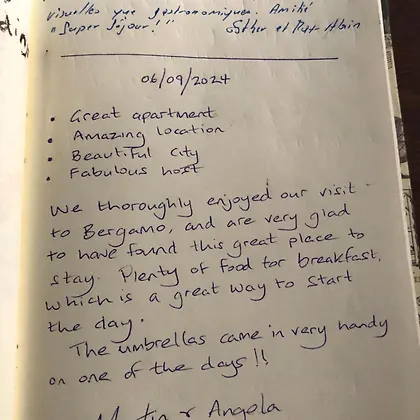 visuelles que gastronomiques. Amitié
"Super Séjour!!" Esther et Alain
06/09/2024
• Great apartment
• Amazing location
• Beautiful City
• Fabulous host
We thoroughly enjoyed our visit
to Bergamo, and are very glad
to have found this great place to
stay. Plenty of food for breakfast,
which is a great way to start
the day.
The umbrellas came in very handy
on one of the days!!
Angela